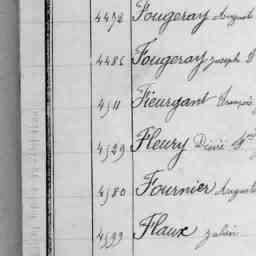 4478 Fougeray August
4486 Fougeray Joseph
4511 Fieurgant François
4529 Fleury Désiré
4580 Fournier Auguste
4599 Flaux Julien